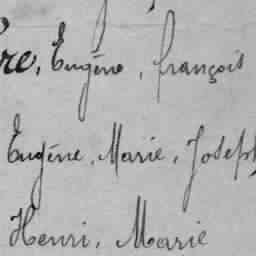 re, Eugène, françois
Eugène, Marie, Joseph
Henri, Marie